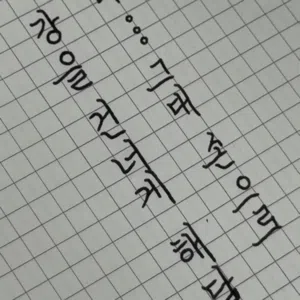 ... 그대 손으로
강을 건너게 해